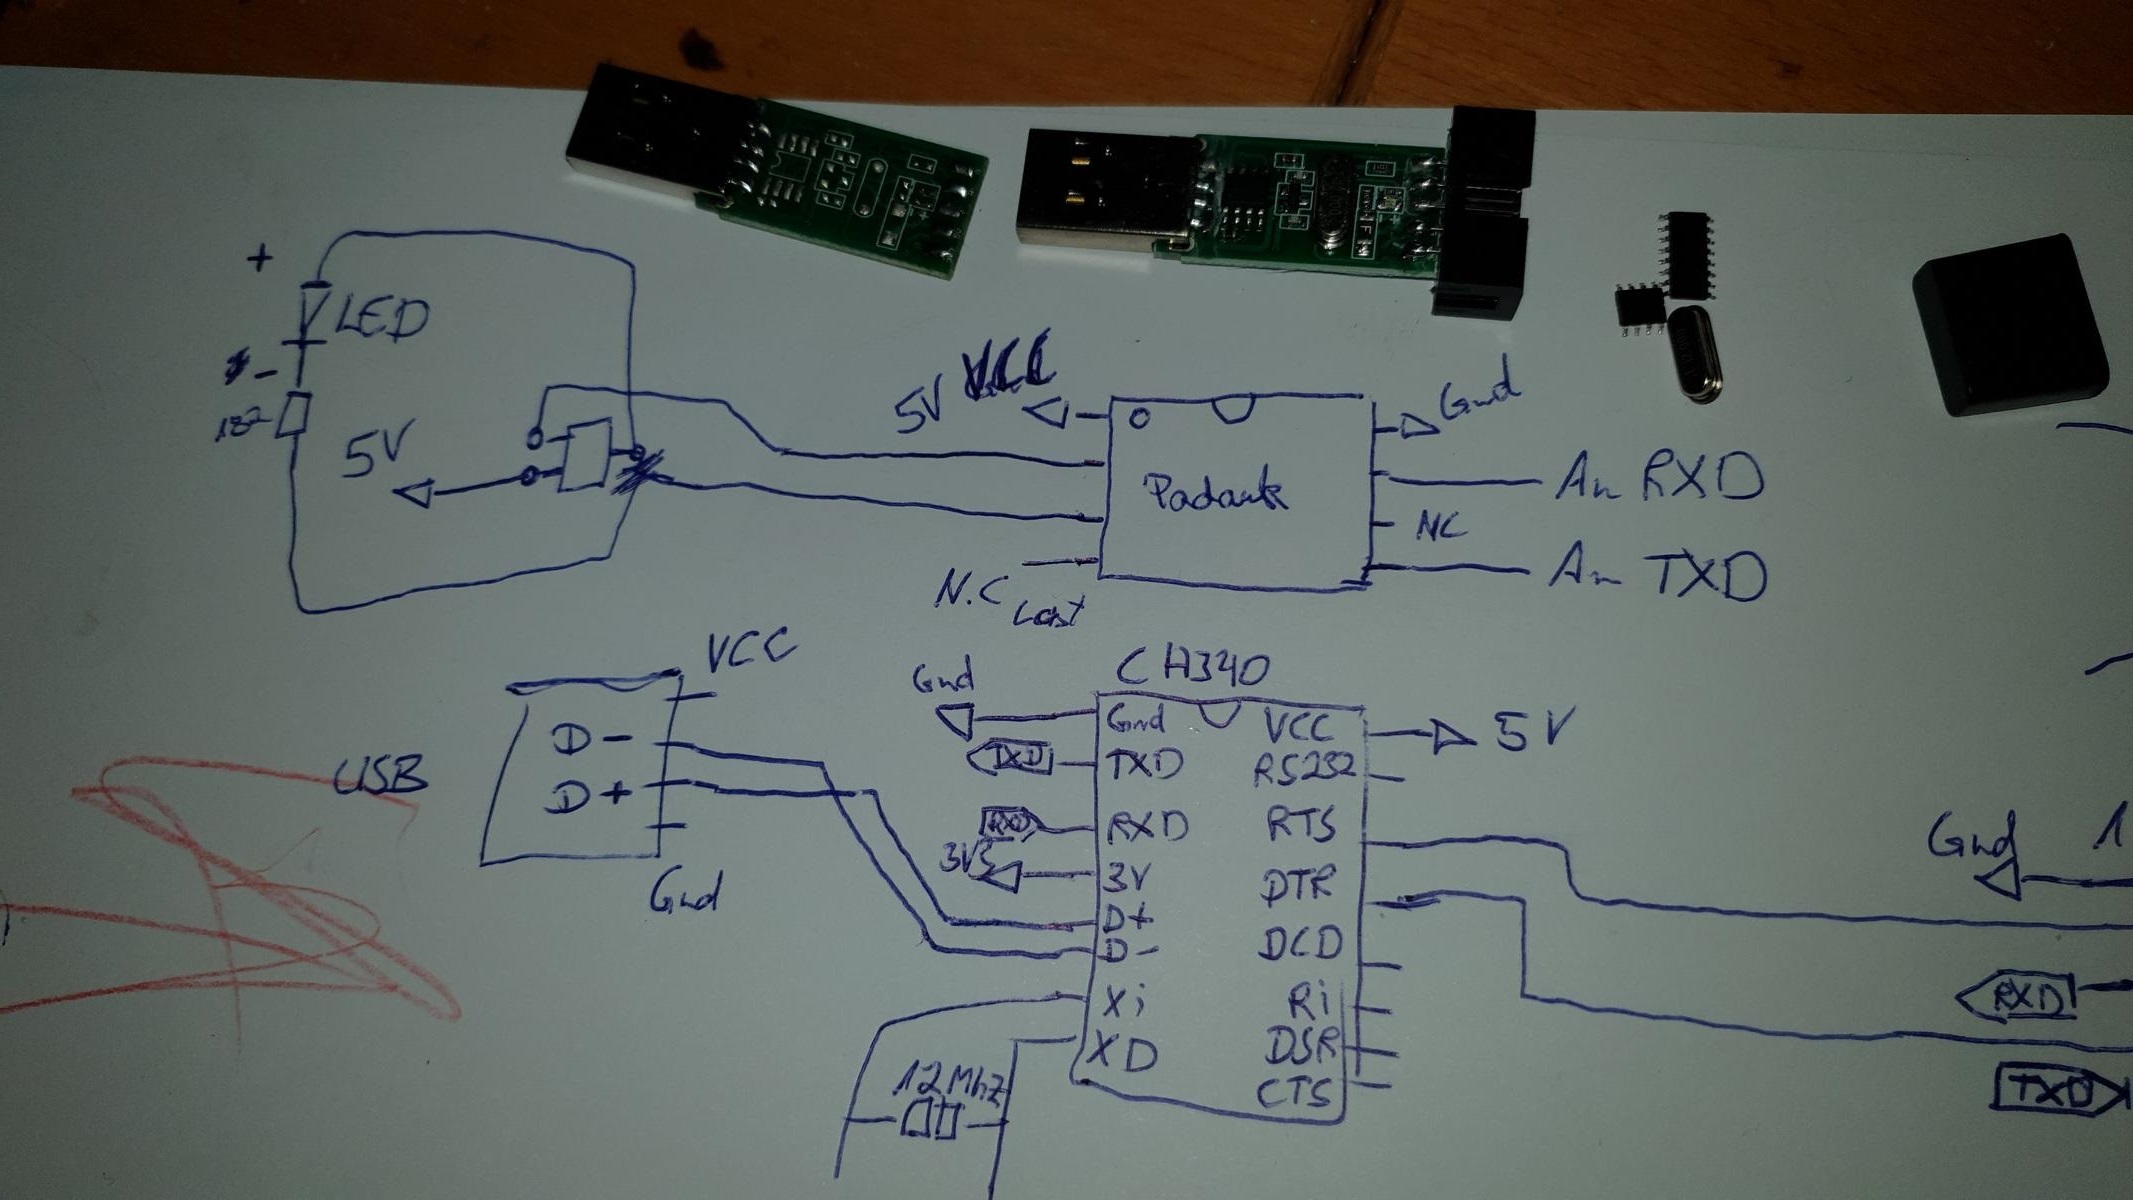 +
LED
-
5V
5V VCC
Gnd
Padauk
An RXD
NC
An TXD
N.C
VCC
USB
D-
D+
Gnd
CH340
Gnd
Gnd
VCC
5V
TXD
TXD
RS232
RXD
RXD
RTS
3V3
3V
DTR
D+
D-
DCD
Xi
Ri
XD
DSR
CTS
12Mhz
Gnd
1
RXD
TXD